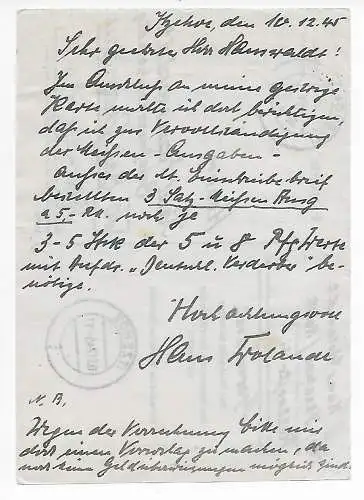 Itzehoe, den 10.12.45
Sehr geehrter Herr Hanswaldt!
Im Anschluß an meine gestrige
Karte möchte ich dort berichtigen,
daß ich zur Vervollständigung
der Meißen-Ausgaben -
außer des lt. Einschreibebrief
bestellten 3 Satz-Meißen Ausg
a 5,- RM. noch je
3-5 Stck der 5 u 8 Pfg Werte
mit Aufdr. „Deutschl. Verderber" be-
nötige.
Hochachtungsvoll
Hans
N.B.
Wegen der Verrechnung bitte mir
dort einen Vorschlag zu machen, da
noch keine Geldüberweisungen möglich sind.